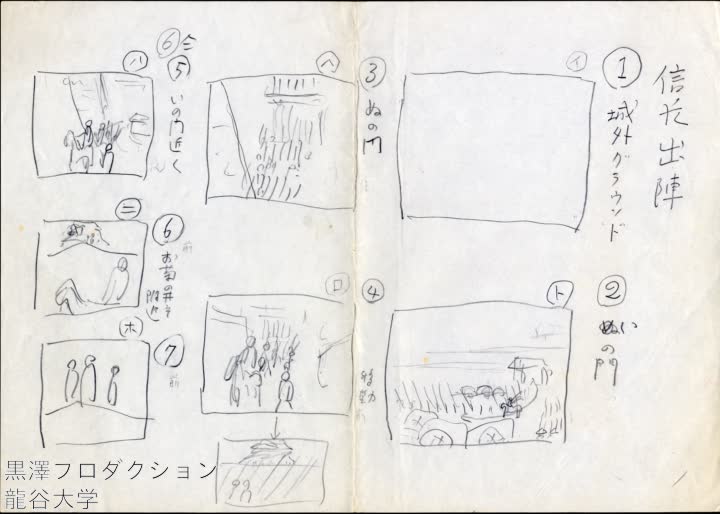 信長出陣
①
城外グラウンド
イ
②
の門
ト
③
ぬの門
ヘ
④
移動
ロ
⑥
⑤
いの門近く
ハ
⑥
お菊の井戸
附近
ニ
⑦
ホ
黒澤プロダクション
龍谷大学